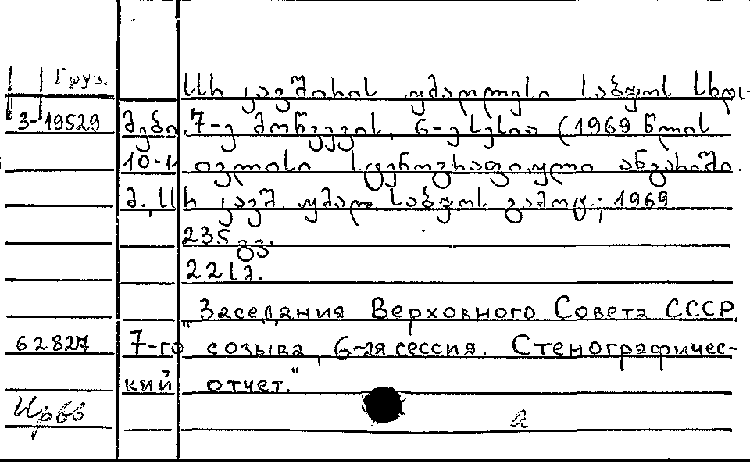 Груз.
სსრ კავშირის უმაღლესი საბჭოს სხდო-
3-19529 მები. 7-ე მოწვევის, 6-ე სესია (1969 წლის
10-11 ივლისი სტენოგრაფიული ანგარიში.
მ., სსრ კავშ. უმაღ. საბჭოს გამოც.; 1969
235 გვ.
"Заседания Верховного Совета СССР
62827 7-го созыва, 6-ая сессия. Стенографичес-
кий отчет."